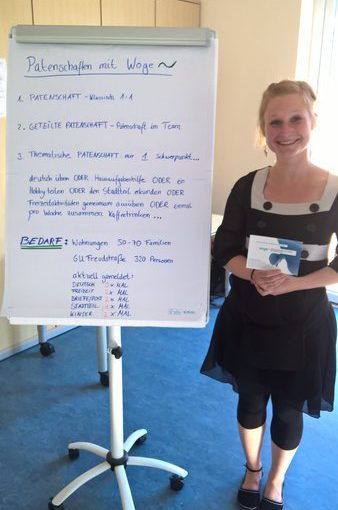 Patenschaften mit Woge
1. PATENSCHAFT - Klassisch 1:1
2. GETEILTE PATENSCHAFT - Patenschaft im Team
3. Thematische PATENSCHAFT mit 1 Schwerpunkt...
deutsch üben ODER Hausaufgabenhilfe ODER ein
Hobby teilen ODER den Stadtteil erkunden ODER
Freizeitaktivitäten gemeinsam ausüben ODER einmal
pro Woche zusammen Kaffeetrinken...
BEDARF: Wohnungen 50-70 Familien
GU Freudstraße 320 Personen
aktuell gemeldet:
DEUTSCH x MAL
FREIZEIT x MAL
BRIEFE/POST x MAL
STADTTEIL x MAL
KINDER x MAL